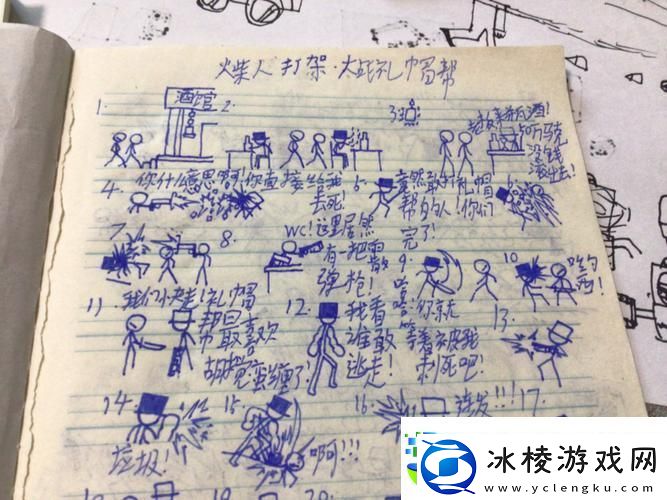 火柴人打架·大战礼帽帮
1.
酒馆
2.
3.
老板来瓶酒!
50万马克
没钱
滚出去!
4. 你什么意思啊!你直接给我
去死!
5. 竟然敢打礼帽
帮的人!你们
完了!
6.
7.
8. WC!这里居然
有一把雨散
弹枪!
9.
哈哈
你就
等着被我
刺死吧!
10.
11. 我们快走!礼帽
帮最喜欢
胡搅蛮缠了!
12. 我看
谁敢
逃走!
13.
14.
垃圾!
15.
啊!!!
16.
连发!!!
17.
18.
19.
20.
冰棱游戏网
www.yclengku.com